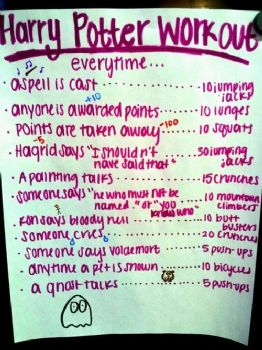 Harry Potter Workout
everytime...
· a spell is cast ........ 10 jumping jacks
+10
· anyone is awarded points ---- 10 lunges
-100
· Points are taken away ...... 10 squats
· Hagrid says "I shouldn't have said that" ...... 30 jumping jacks
· A painting talks ........ 15 crunches
· someone says "he who must not be named" or "you know who" 10 mountain climbers
· Ron says bloody hell ...... 10 butt busters
· someone cries ........ 20 crunches
· someone says voldemort ..... 5 push-ups
· anytime a pet is shown ---- 10 bicycles
· a ghost talks ........ 5 push-ups